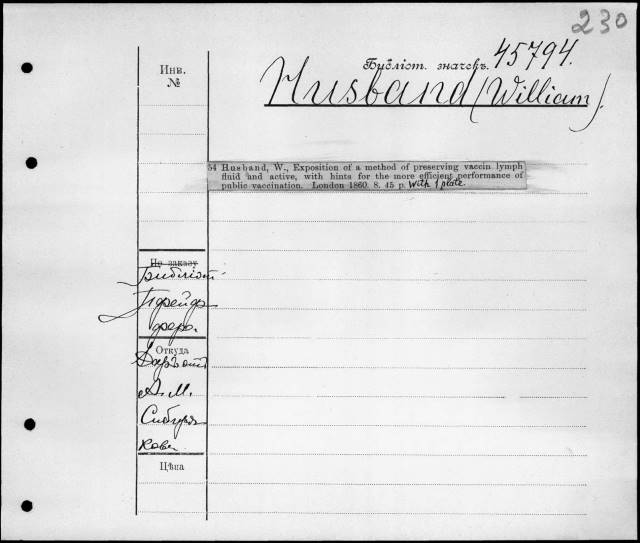 230
Инв.
№
Библіот. значекъ. 45794.
Husband (William).
54 Husband, W., Exposition of a method of preserving vaccin lymph
fluid and active, with hints for the more efficient performance of
public vaccination. London 1860. 8. 45 p. with 1 plate.
По заказу
Библіот.
Пфейф
фера.
Откуда
А. М.
Сибиря
кова.
Цѣна